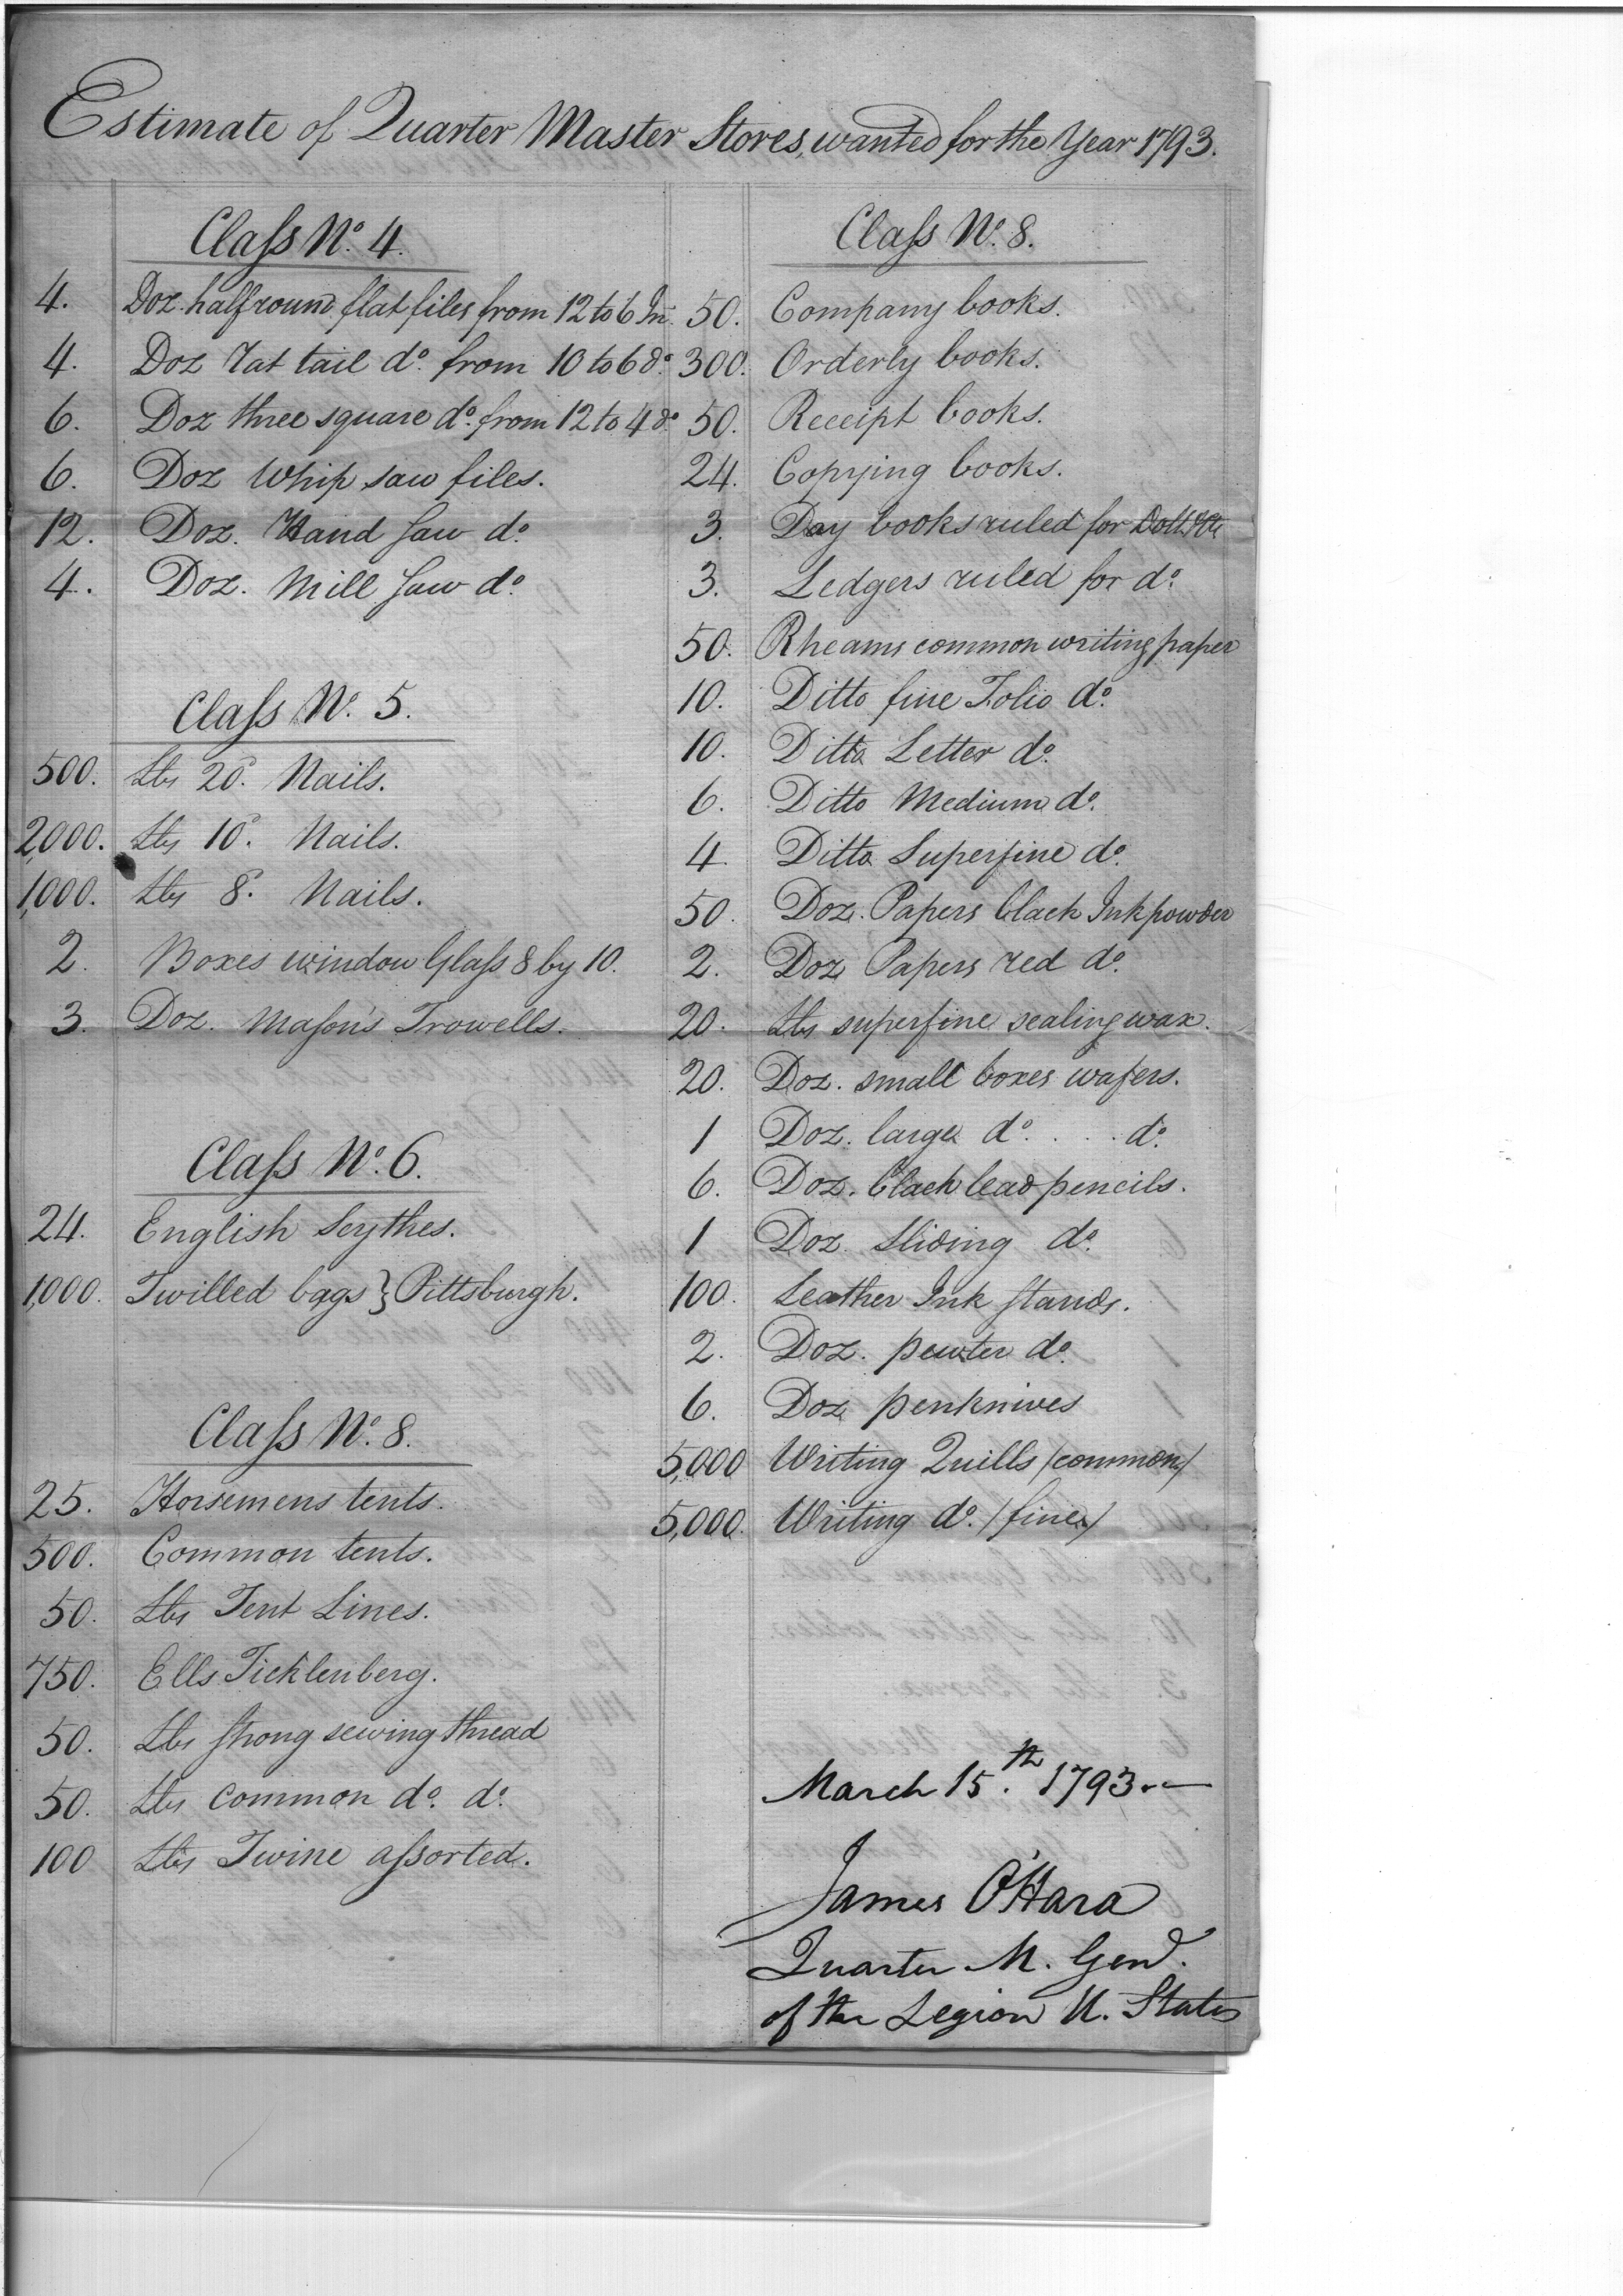 Estimate of Quarter Master Stores, wanted for the Year 1793.
Class No. 4.
4. Doz. halfround flat files from 12 to 6 In.
4. Doz rat tail do. from 10 to 6 do.
6. Doz three square do. from 12 to 4 do.
6. Doz Whip saw files.
12. Doz. Hand saw do.
4. Doz. Mill saw do.
Class No. 5.
500. Lbs 20d. Nails.
2,000. Lbs 10d. Nails.
1,000. Lbs 8d. Nails.
2. Boxes window Glass 8 by 10.
3. Doz. Mason's Trowells.
Class No. 6.
24. English Scythes.
1,000. Twilled bags } Pittsburgh.
Class No. 8.
25. Horsemens tents.
500. Common tents.
50. Lbs Tent Lines.
750. Ells Ticklenberg.
50. Lbs strong sewing thread
50. Lbs common do. do.
100 Lbs Twine assorted.
Class No. 8.
50. Company books.
300. Orderly books.
50. Receipt books.
24. Copying books.
3. Day books ruled for Dolls
3. Ledgers ruled for do.
50. Rheams common writing paper
10. Ditto fine Folio do.
10. Ditto Letter do.
6. Ditto Medium do.
4. Ditto Superfine do.
50. Doz. Papers black Inkpowder
2. Doz Papers red do.
20. Lbs superfine sealing wax.
20. Doz. small boxes wafers.
1 Doz. large do. . . . do.
6. Doz. black lead pencils.
1 Doz. Sliding do.
100. Leather Ink stands.
2. Doz. pewter do.
6. Doz penknives
5,000 Writing Quills /common/
5,000. Writing do. /fine/
March 15.th 1793.
James O'Hara
Quarter M. Genl.
of the Legion U. States